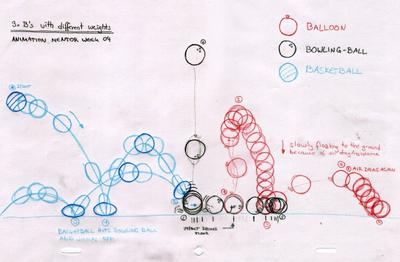 3x B's with different weights
ANIMATION MENTOR WEEK 04
BALLOON
BOWLING-BALL
BASKETBALL
START
slowly floating to the ground
because of
AIR DRAG AGAIN
BASKETBALL HITS BOWLING BALL
AND
IMPACT